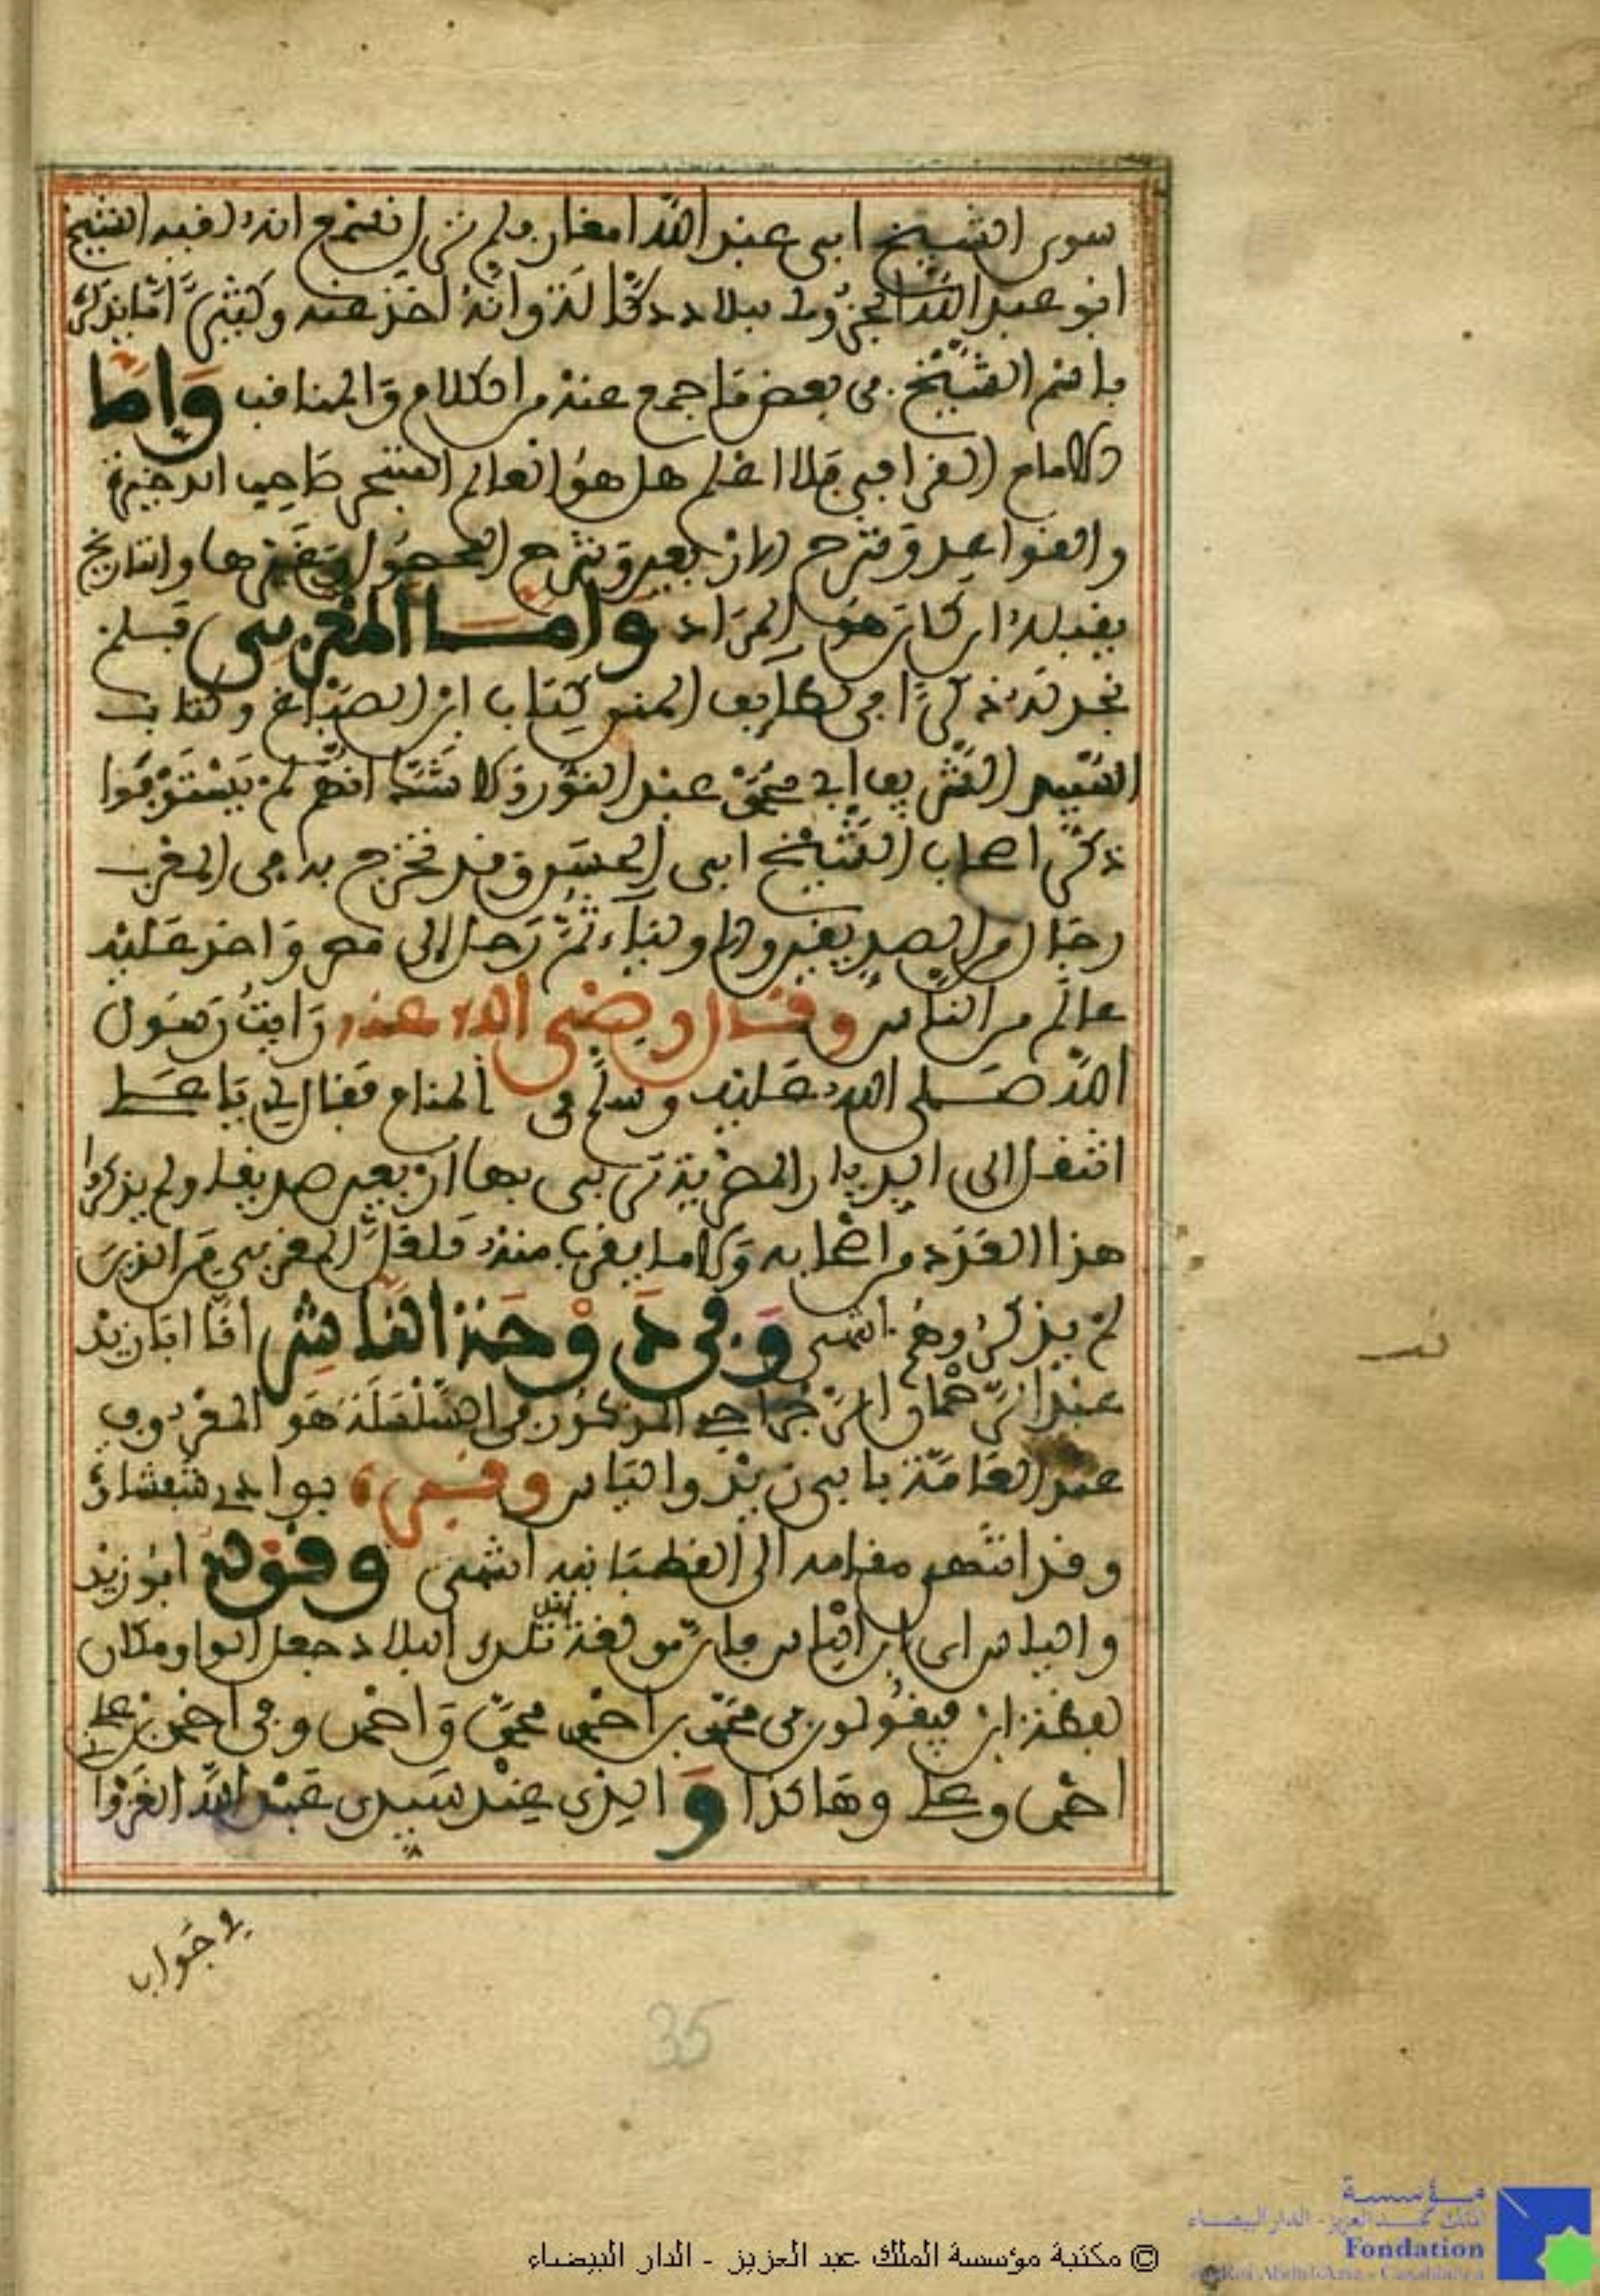 سوى الشيخ ابي عبد الله امغار ولم نزل نسمع انه لقيه الشيخ
ابو عبد الله الجزولي ببلاد دكالة وانه اخذ عنه وكثيرا ما يذكر
باسم الشيخ في بعض ما جمع عنه من الكلام والمناقب واما
الامام القرافي فلا اعلم هل هو العالم المتبحر صاحب الذخيرة
والقواعد وشرح الاربعين وشرح المحصول وغيرها والتاريخ
يقبله ان كان هو المراد واما المغربي فلم
نجد له ذكرا في لطايف المنن وكتاب ابن الصباغ وكتاب
السيد الشريف ابي محمد عبد النور ولا شك انهم لم يستوفوا
ذكر اصحاب الشيخ ابي الحسن وقد تخرج به في المغرب
رجال من الصديقين والاولياء ثم رحل الى مصر واخذ عليه
عالم من الناس وقال رضي الله عنه رايت رسول
الله صلى الله عليه وسلم في المنام فقال لي يا علي
انتقل الى الديار المصرية تربي بها اربعين صديقا ولم يذكروا
هذا العدد من اصحابه ولا ما يقرب منه فلعل المغربي من الذين
لم يذكروهم انتهى وفي دوحة الناشر ان ابا زيد
عبد الرحمان الرجراجي المذكور في السلسلة هو المعروف
عند العامة بابي زيد والياس وقبره بوادي شفشاون
وقد انتهى مقامه الى القطبانية انتهى وقوله ابو زيد
والياس اي ابن الياس جار على لغة تلك البلاد جعل الواو مكان
لفظة ابن فيقولون في محمد بن احمد محمد واحمد وفي احمد بن علي
احمد وعلي وهاكذا والذي عند سيدي عبد الله الغزواني
في جواب
35
© مكتبة مؤسسة الملك عبد العزيز - الدار البيضاء
مؤسسة
الملك عبد العزيز - الدار البيضاء
Fondation
du Roi Abdul-Aziz - Casablanca